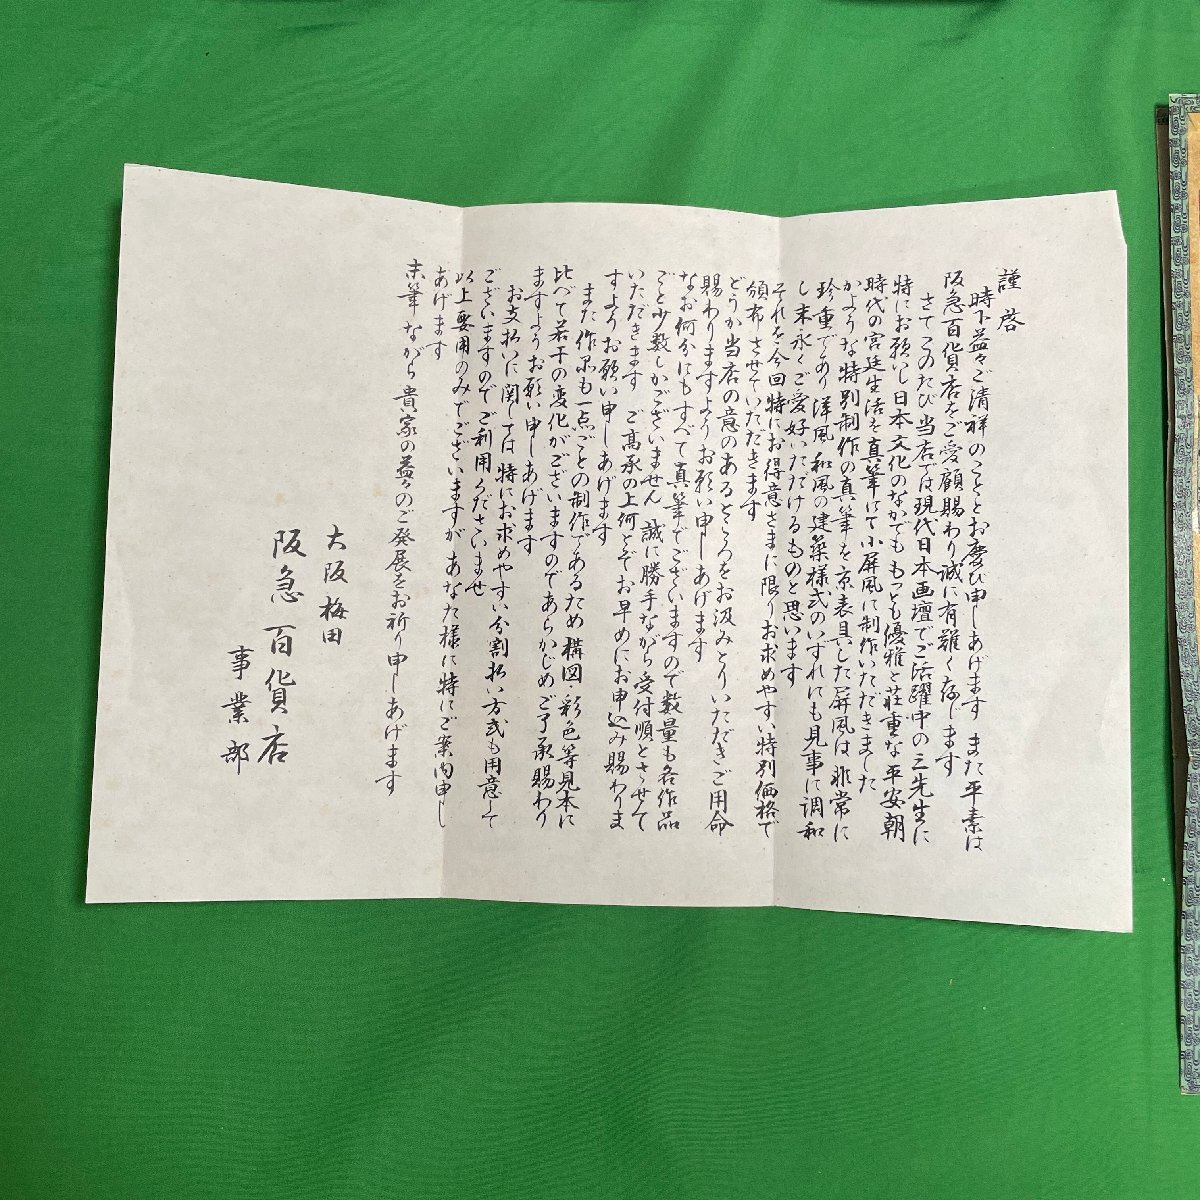 謹啓
時下益々ご清祥のこととお慶び申しあげます また平素は
阪急百貨店をご愛顧賜わり誠に有難く存じます
さてこのたび当店では現代日本画壇でご活躍中の三先生に
特にお願いし日本文化のなかでももっとも優雅と荘重な平安朝
時代の宮廷生活を真筆にて小屏風に制作いただきました
かような特別制作の真筆を京表具した屏風は非常に
珍重であり洋風和風の建築様式のいずれにも見事に調和
し末永くご愛好いただけるものと思います
それを今回特にお得意さまに限りお求めやすい特別価格で
頒布させていただきます
どうか当店の意のあるところをお汲みとりいただきご用命
賜わりますようお願い申しあげます
なお何分にもすべて真筆でございますので数量も各作品
ごと少数しかございません 誠に勝手ながら受付順とさせて
いただきます ご高承の上何とぞお早めにお申込み賜わりま
すようお願い申しあげます
また作品も一点ごとの制作であるため構図・彩色等見本に
比べて若干の変化がございますのであらかじめご了承賜わり
ますようお願い申しあげます
お支払いに関しては特にお求めやすい分割払い方式も用意して
ございますのでご利用くださいませ
以上要用のみでございますが あなた様に特にご案内申し
あげます
末筆ながら貴家の益々のご発展をお祈り申しあげます
大阪梅田
阪急百貨店
事業部